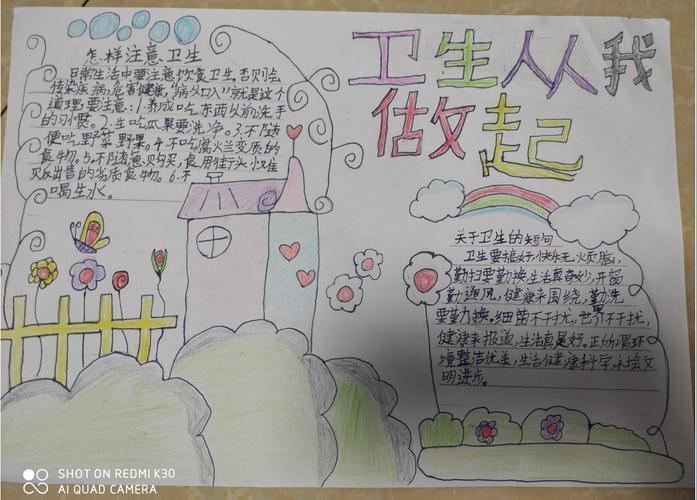 怎样注意卫生
日常生活中要注意饮食卫生,否则会
传染疾病,危害健康,"病从口入"就是这个
道理,要注意:1.养成吃东西以前洗手
的习惯。2.生吃瓜果要洗净。3.不随
便吃野菜野果。4.不吃腐烂变质的
食物。5.不随意购买,食用街头小摊
贩出售的劣质食物。6.不
喝生水。
卫生人人我
做起
关于卫生的短句
卫生要搞好,快乐无烦恼,
勤扫要勤换,生活真奇妙,开窗
勤通风,健康来围绕,勤洗
要勤力换,细菌不干扰,
健康来报道,生活真是好。正的环
境整洁优美,生活健康科学,永绘文
明进步。
SHOT ON REDMI K30
AI QUAD CAMERA